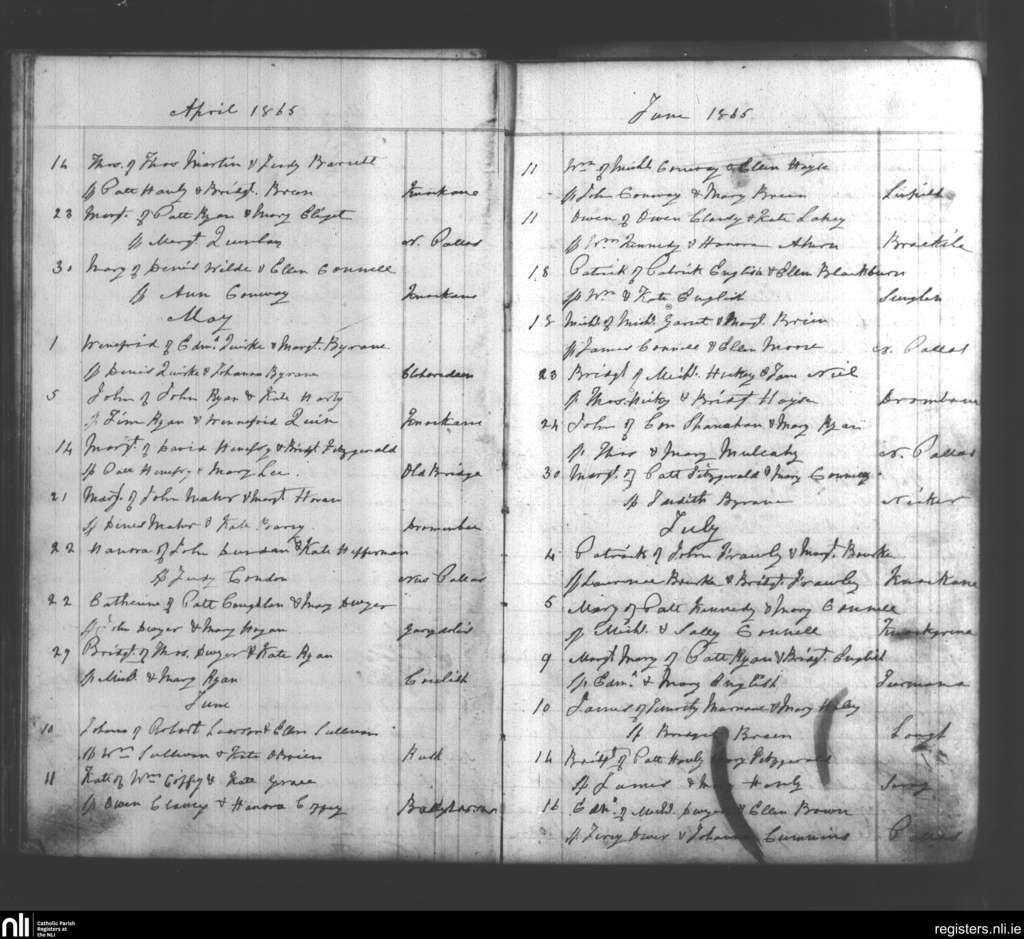 April 1865
14 Thos. of Thos Martin & Judy Barrett
sp Patt Hanly & Bridgt. Breen Knockane
23 Margt. of Patt Ryan & Mary
sp Margt Quinlan N. Pallas
30 Mary of Denis Wilde & Ellen Connell
sp Ann Conway Knockane
May
1 Winefrid of Edmd. Quirke & Margt. Byrane
sp Denis Quirke & Johanna Byrane
5 John of John Ryan & Kate Harty
sp Tim Ryan & Winnefrid Quin Knockane
14 Margt. of David & Bridgt Fitzgerald
sp Patt & Mary Lee. Old Bridge
21 Margt. of John Maher & Margt Horan
sp Denis Maher & Kate
22 Hanora of John & Kate Heffernan
sp Judy Condon New Pallas
22 Catherine of Patt Coughlan & Mary Dwyer
sp John Dwyer & Mary Hogan
29 Bridgt. of Thos. Dwyer & Kate Ryan
sp Michl & Mary Ryan
June
10 Johana of Robert & Ellen Sullivan
sp Wm Sullivan & Kate OBrien
11 Kate of Wm Coffey & Kate Grace
sp Owen Clancy & Hanora Coffey
June 1865
11 Wm of Michl Conway & Ellen Hayes
sp John Conway & Mary Breen
11 Owen of Owen & Kate Lahey
sp Wm Kennedy & Hanora Ahern
18 Patrick of Patrick English & Ellen Blackburn
sp Wm & Kate English
18 Michl of Michl. Garret & Margt. Brien
sp James Connell & Ellen Moore N. Pallas
23 Bridgt of Michl. Hickey & Jane Niel
sp Thos. Hicky & Bridgt Hayes Drombane
24 John of Con Shanahan & Mary Ryan
sp Thos & Mary Mulcahy N. Pallas
30 Margt. of Patt Fitzgerald & Mary Connery
sp Judith Byrane Nicker
July
4 Patrick of John Frawly & Margt. Bourke
sp Lawrence Bourke & Bridgt Frawley Knockane
5 Mary of Patt Kennedy & Mary Connell
sp Michl. & Sally Connell
9 Margt Mary of Patt Ryan & Bridgt. English
sp Edmd. & Mary English
10 James of Timothy Marnane & Mary
sp Bridget Breen
14 Bridgt of Patt Hanly Mary Fitzgerald
sp James & Hanly
16 Edmd. of Michl. Dwyer & Ellen Bowen
sp & Johana Cummins Pallas
nli
Catholic Parish
Registers at
the NLI
registers.nli.ie